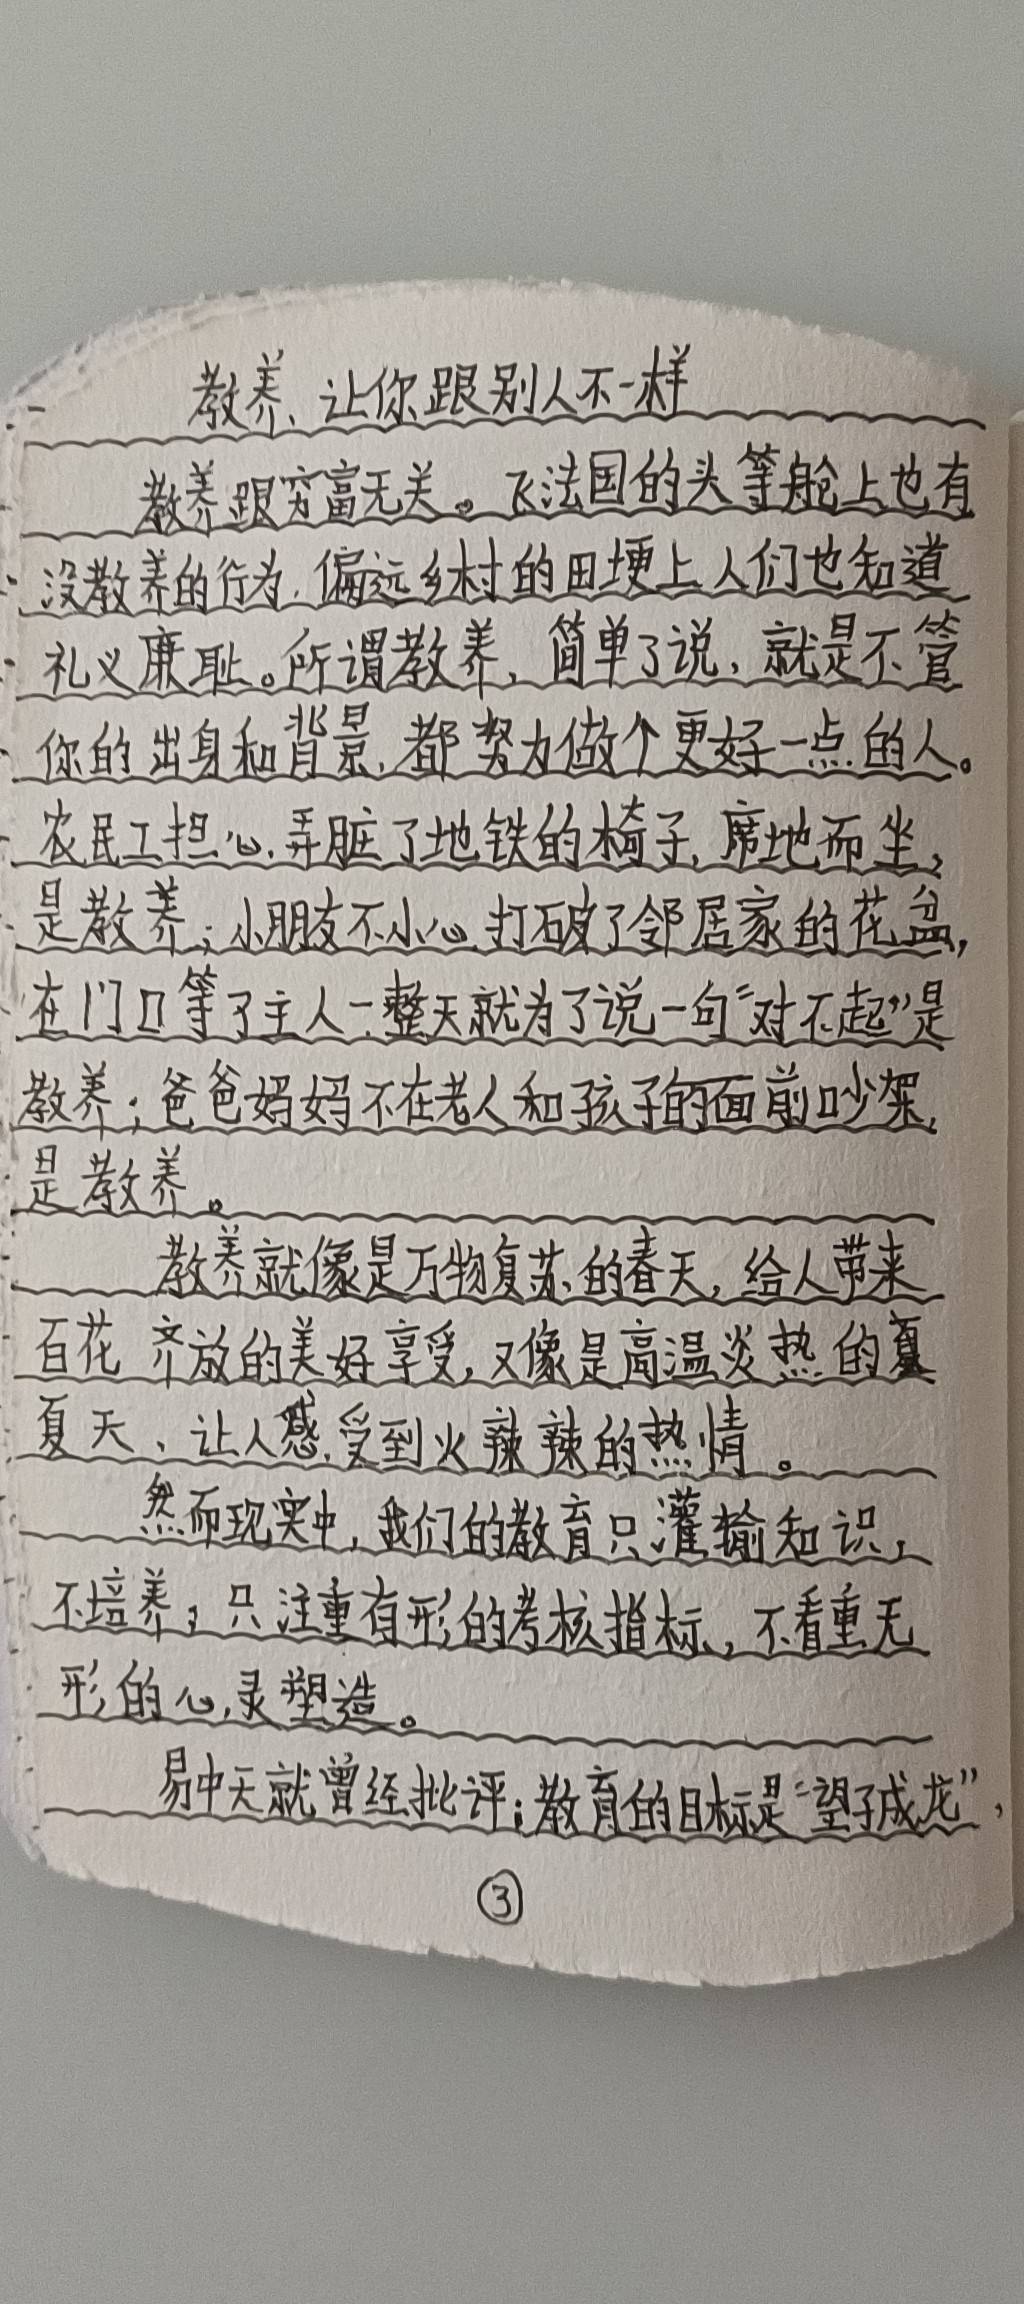 教养，让你跟别人不一样
教养跟穷富无关。飞法国的头等舱上也有
没教养的行为，偏远乡村的田埂上人们也知道
礼义廉耻。所谓教养，简单了说，就是不管
你的出身和背景，都努力做个更好一点的人。
农民工担心弄脏了地铁的椅子，席地而坐，
是教养；小朋友不小心打破了邻居家的花盆，
在门口等了主人一整天就为了说一句“对不起”是
教养；爸爸妈妈不在老人和孩子的面前吵架，
是教养。
教养就像是万物复苏的春天，给人带来
百花齐放的美好享受，又像是高温炎热的夏
夏天、让人感受到火辣辣的热情。
然而现实中，我们的教育只灌输知识，
不培养，只注重有形的考核指标，不看重无
形的心灵塑造。
易中天就曾经批评；教育的目标是“望子成龙”，
③